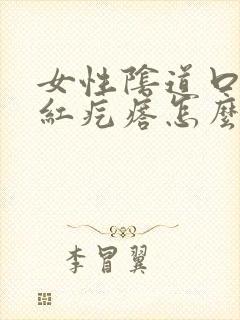 女性陰道口
紅疙瘩怎麼
李冒翼